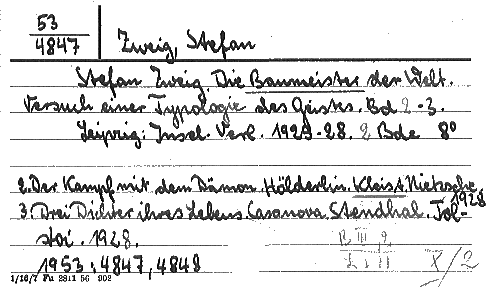 53
4847
Zweig, Stefan
Stefan Zweig. Die Baumeister der Welt.
Versuch einer Typologie des Geistes. Bd 2-3.
Leipzig: Insel-Verl. 1923-28. 2 Bde 8°
2. Der Kampf mit dem Dämon. Hölderlin. Kleist. Nietzsche.
1928
3. Drei Dichter ihres Lebens. Casanova. Stendhal. Tol-
stoi. 1928.
B III, 2
1953: 4847, 4848
X/2
1/16/7 Fu 2811 56 902